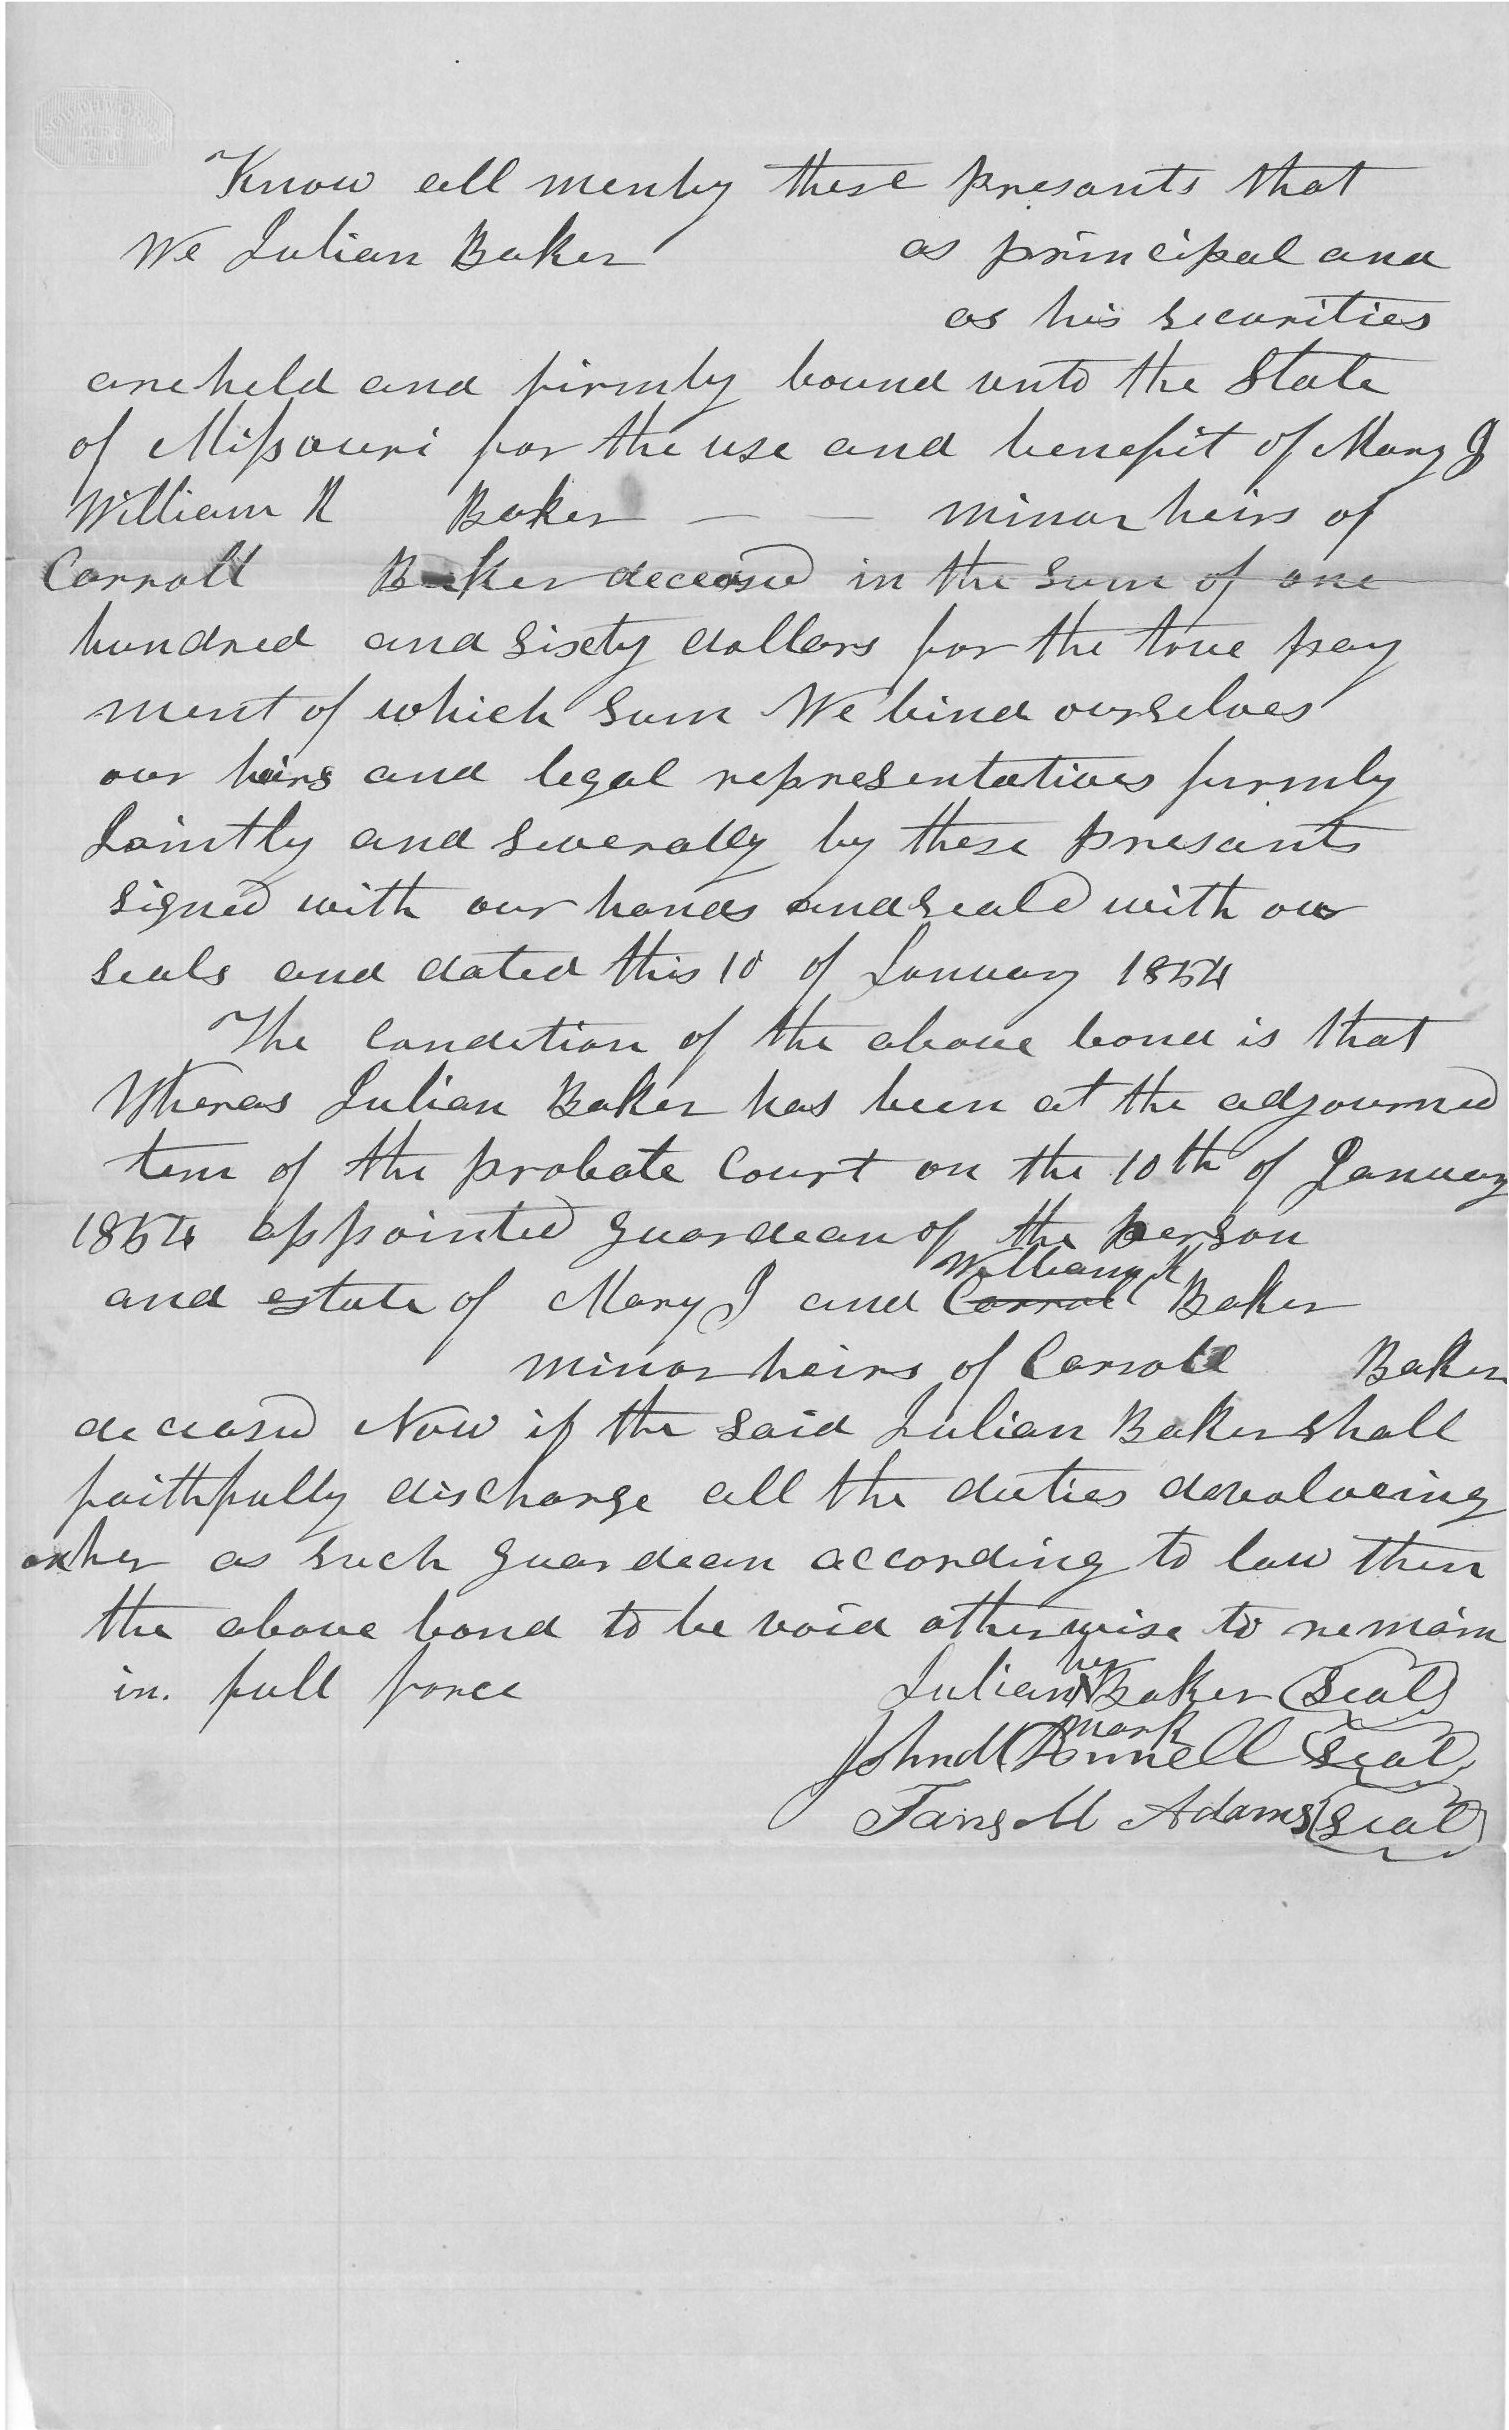 Know all men by these presants that
We Julian Baker as principal and
as his securities
are held and firmly bound unto the State
of Missouri for the use and benefit of Mary J
William R Baker — — minor heirs of
Carroll Baker deceasd in the sum of one
hundred and sixety dollars for the true pay
ment of which sum We bind ourselves
our heirs and legal representatives firmly
Jointly and severally by these presants
signed with our hands and seald with our
seals and dated this 10 of January 1854
The condition of the above bond is that
Wheras Julian Baker has been at the adjourned
term of the probate Court on the 10th of January
1854 appointed guardean of the person
William R
and estate of Mary J and Carroll Baker
minor heirs of Carroll Baker
deceasd Now if the said Julian Baker shall
faithfully discharge all the duties devolveing
on her as such guardean according to law then
the above bond to be void otherwise to remain
her
in full force Julian X Baker (Seal)
mark
John (Seal)
M Adams (Seal)